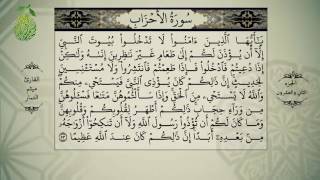 سُورَةُ الْأَحْزَابِ
يَٰٓأَيُّهَا الَّذِينَ ءَامَنُوا لَا تَدْخُلُوا بُيُوتَ النَّبِيِّ
إِلَّآ أَن يُؤْذَنَ لَكُمْ إِلَىٰ طَعَامٍ غَيْرَ نَٰظِرِينَ إِنَىٰهُ وَلَٰكِنْ
إِذَا دُعِيتُمْ فَادْخُلُوا فَإِذَا طَعِمْتُمْ فَانتَشِرُوا وَلَا مُسْتَـْٔنِسِينَ
لِحَدِيثٍ إِنَّ ذَٰلِكُمْ كَانَ يُؤْذِي النَّبِيَّ فَيَسْتَحْيِۦ مِنكُمْ
وَاللَّهُ لَا يَسْتَحْيِۦ مِنَ الْحَقِّ وَإِذَا سَأَلْتُمُوهُنَّ مَتَٰعًا فَسْـَٔلُوهُنَّ
مِن وَرَآءِ حِجَابٍ ذَٰلِكُمْ أَطْهَرُ لِقُلُوبِكُمْ وَقُلُوبِهِنَّ
وَمَا كَانَ لَكُمْ أَن تُؤْذُوا رَسُولَ اللَّهِ وَلَآ أَن تَنكِحُوٓا أَزْوَٰجَهُۥ
مِنۢ بَعْدِهِۦٓ أَبَدًا إِنَّ ذَٰلِكُمْ كَانَ عِندَ اللَّهِ عَظِيمًا ٥٣
الجزء
الثاني والعشرون
القارئ
ميثم
التمار